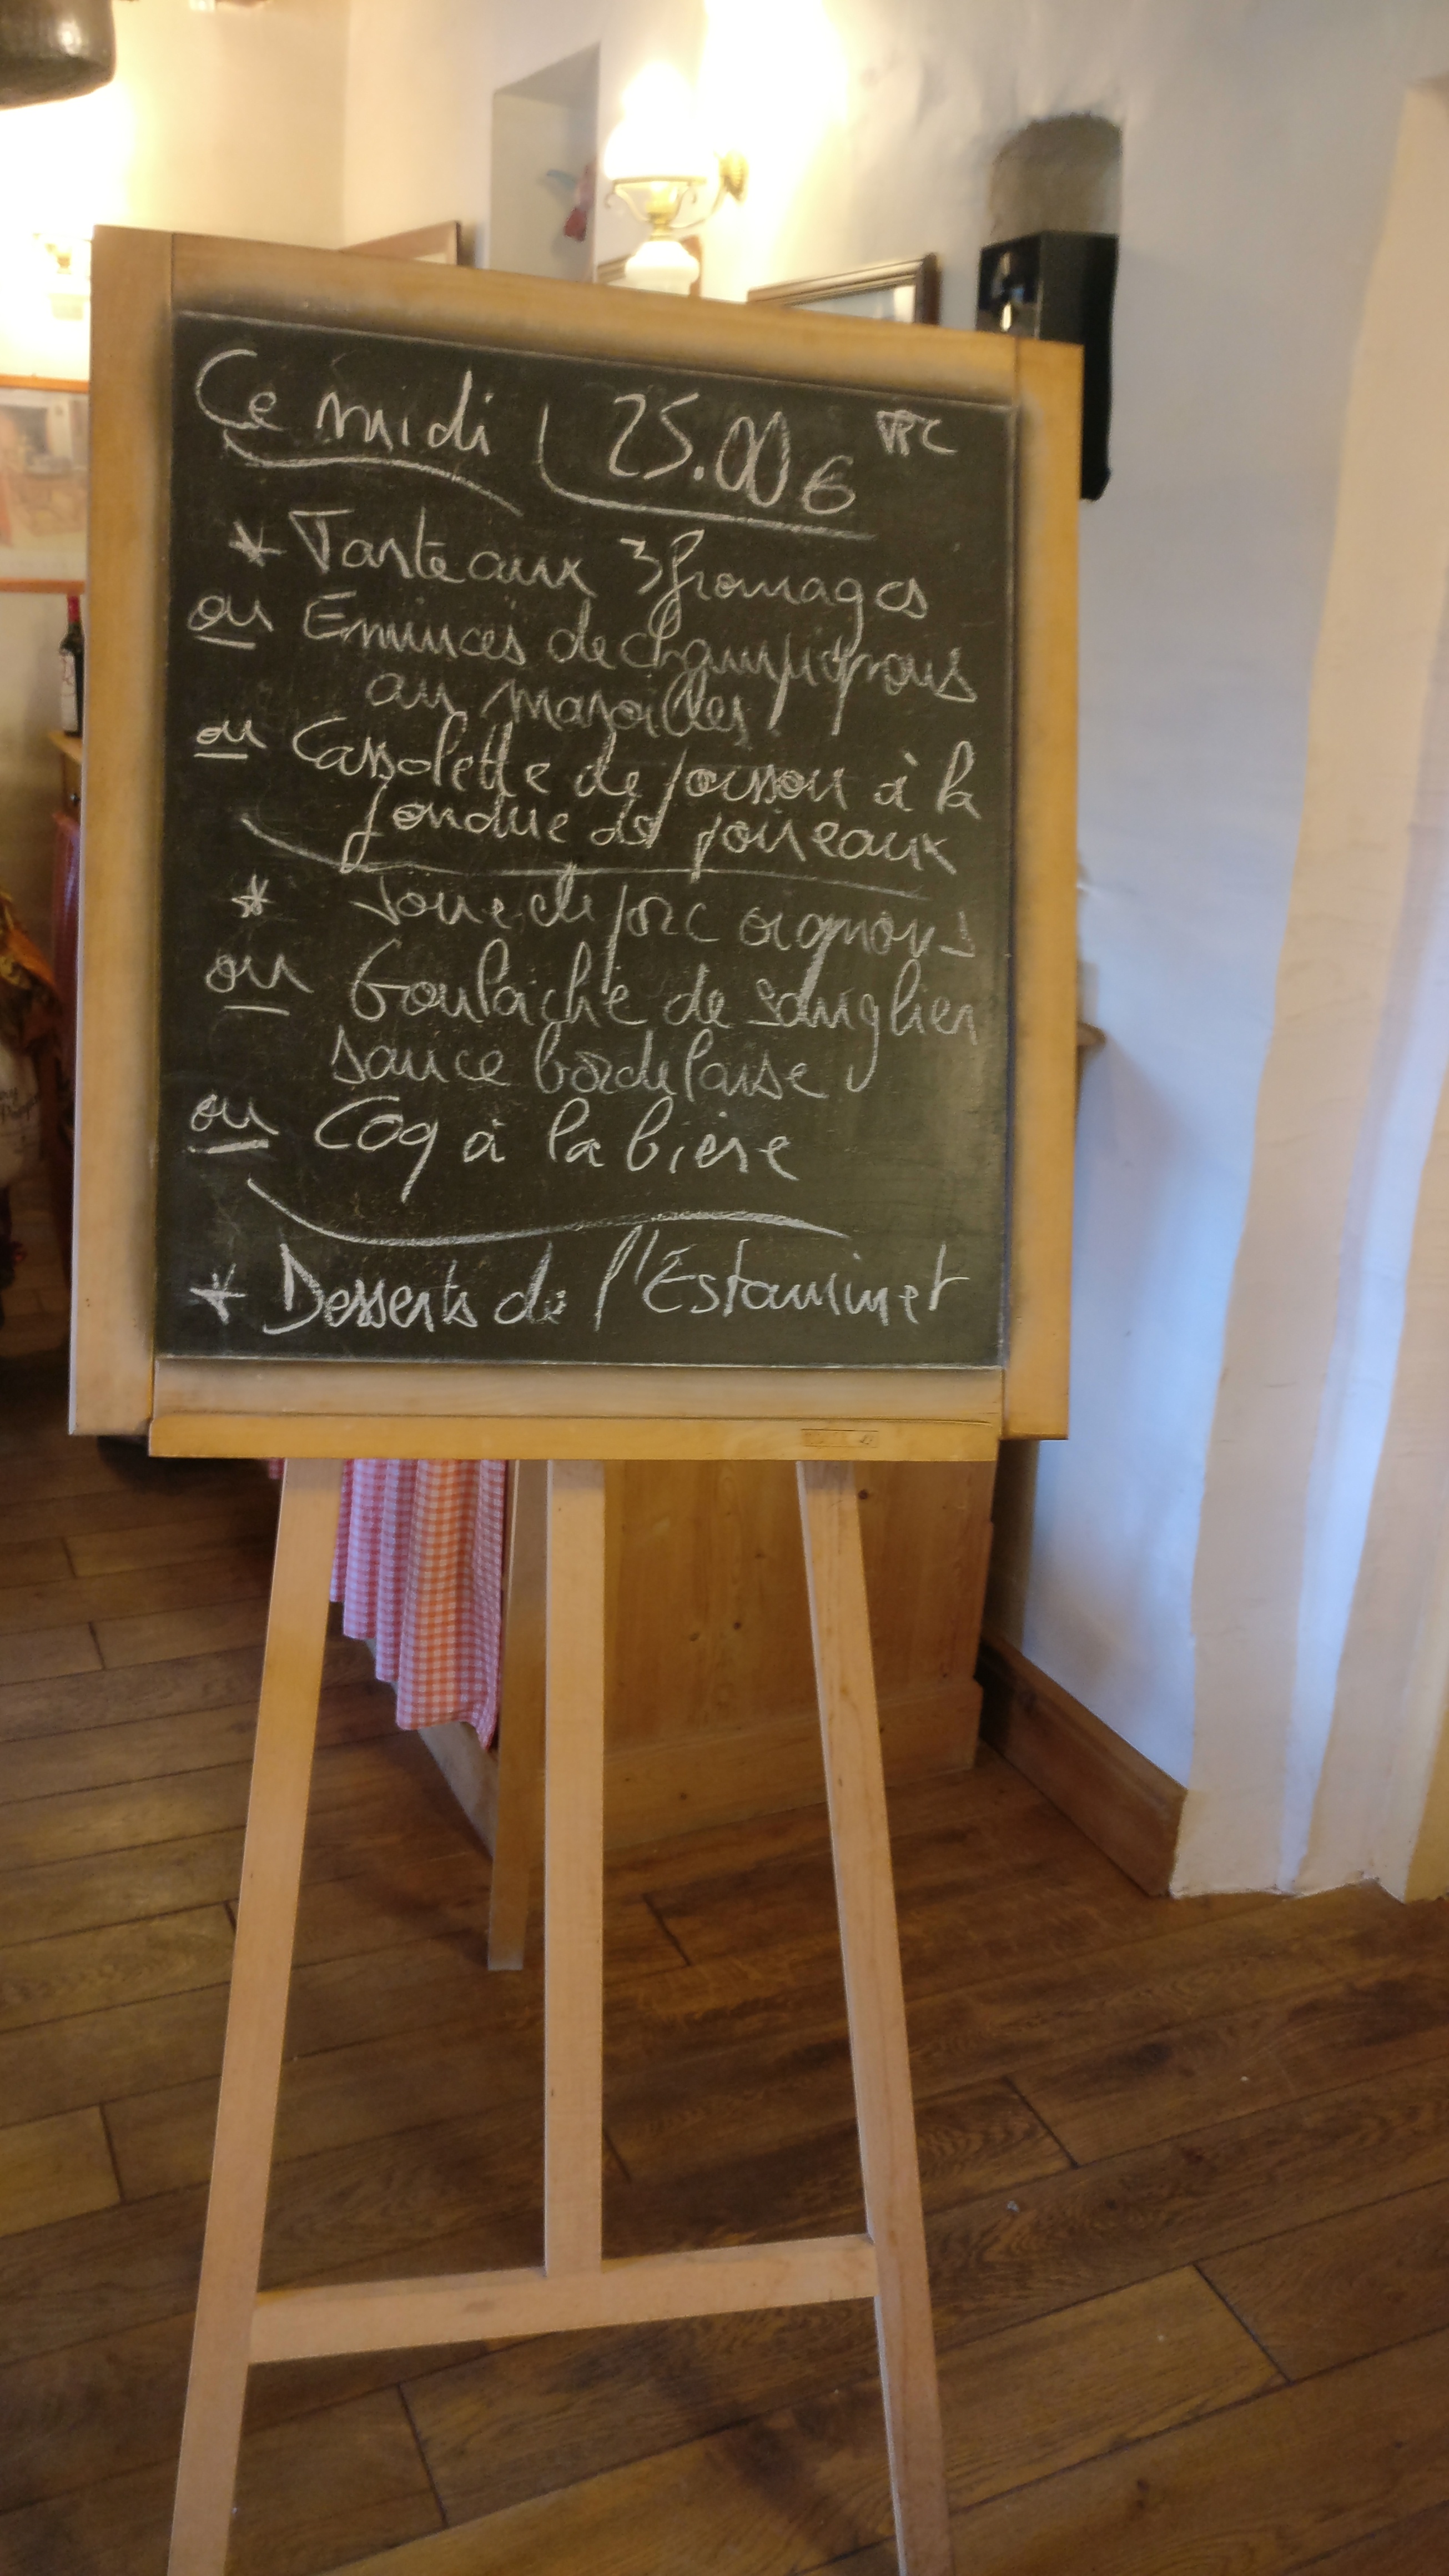 Ce midi 25.00 € TTC
* Tarte aux 3 fromages
ou Emincés de champignons
au maroilles
ou Cassolette de poisson à la
fondue de poireaux
* Joue de porc oignons
ou Goulache de sanglier
sauce bordelaise
ou Coq à la bière
* Desserts de l'Estaminet